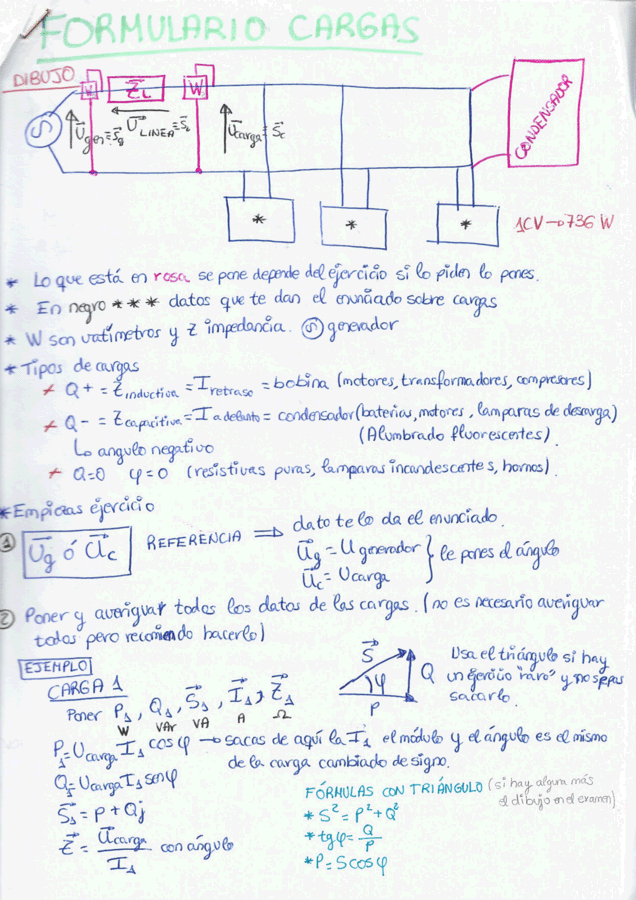 FORMULARIO CARGAS
DIBUJO
W Z̄L W
U⃗gen≡S⃗g U⃗LINEA≡S⃗L U⃗carga≡S⃗c
CONDENSADOR
* * *
1CV→736 W
* Lo que está en rosa se pone depende del ejercicio si lo piden lo pones.
* En negro * * * datos que te dan el enunciado sobre cargas
* W son vatímetros y Z impedancia. generador
* Tipos de cargas
* Q+ = Z̄inductiva = I retraso = bobina (motores, transformadores, compresores)
* Q- = Zcapacitiva = I adelanto = condensador (baterias, motores, lamparas de descarga)
(Alumbrado fluorescentes).
↳ angulo negativo
* Q=0 φ=0 (resistivas puras, lamparas incandescentes, hornos).
* Empiezas ejercicio
① U⃗g ó U⃗c REFERENCIA ⇒ dato te lo da el enunciado.
U⃗g = U generador
U⃗c = Ucarga
} le pones el ángulo
② Poner y averiguar todos los datos de las cargas. (no es necesario averiguar
todos pero recomiendo hacerlo)
EJEMPLO
CARGA 1
Poner P₁, Q₁, S⃗₁, I⃗₁, Z⃗₁
W VAr VA A Ω
S⃗ Q φ P
Usa el triángulo si hay
un ejercicio "raro" y no sepas
sacarlo.
P₁=Ucarga I₁ cosφ → sacas de aquí la I₁ el módulo y el ángulo es el mismo
de la carga cambiado de signo.
Q₁=Ucarga I₁ senφ
S⃗₁ = P + Qj
Z⃗ = U⃗carga / I₁ con ángulo
FÓRMULAS CON TRIÁNGULO (si hay alguna más
el dibujo en el examen)
* S² = P² + Q²
* tgφ = Q/P
* P = S cosφ